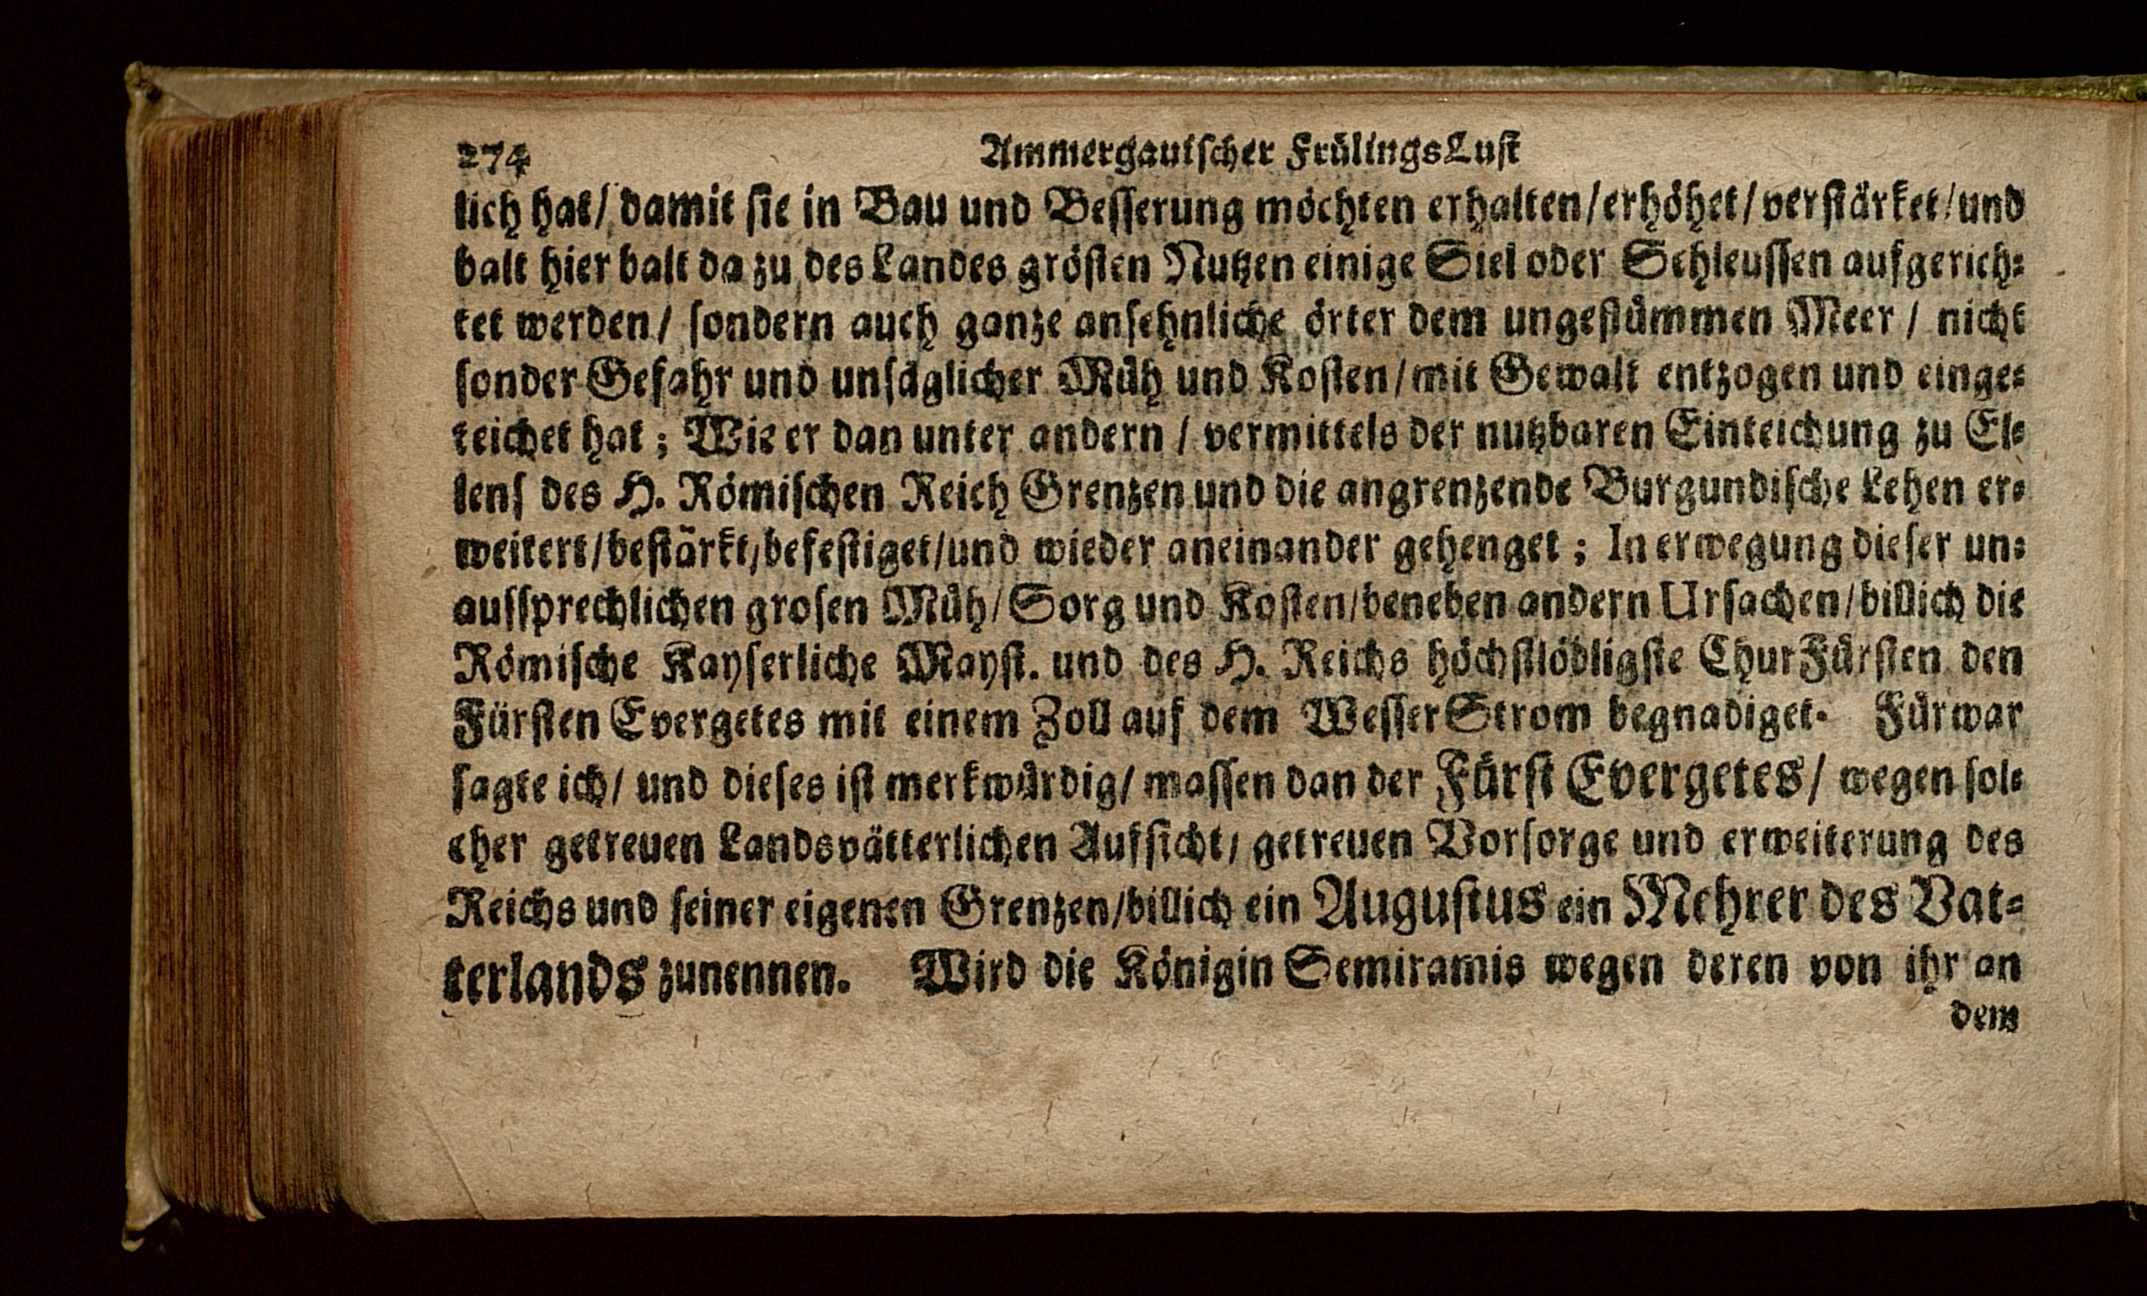 274 Ammergautscher FrülingsLust
lich hat/ damit sie in Bau und Besserung möchten erhalten/erhöhet/verstärket/und
balt hier balt da zu des Landes grösten Nutzen einige Siel oder Schleussen aufgerich-
tet werden/ sondern auch ganze ansehnliche örter dem ungestümmen Meer / nicht
sonder Gefahr und unsäglicher Müh und Kosten/mit Gewalt entzogen und einge-
teichet hat; Wie er dan unter andern / vermittels der nutzbaren Einteichung zu El-
lens des H. Römischen Reich Grenzen und die angrenzende Burgundische Lehen er-
weitert/bestärkt/befestiget/und wieder aneinander gehenget; In erwegung dieser un-
aussprechlichen grosen Müh/Sorg und Kosten/beneben andern Ursachen/billich die
Römische Kayserliche Mayst. und des H. Reichs höchstlöbligste ChurFürsten den
Fürsten Evergetes mit einem Zoll auf dem WesserStrom begnadiget. Fürwar
sagte ich/ und dieses ist merkwürdig/ massen dan der Fürst Evergetes/ wegen sol-
cher getreuen Landsvätterlichen Aufsicht/ getreuen Vorsorge und erweiterung des
Reichs und seiner eigenen Grenzen/billich ein Augustus ein Mehrer des Vat-
terlands zunennen. Wird die Königin Semiramis wegen deren von ihr an
dem